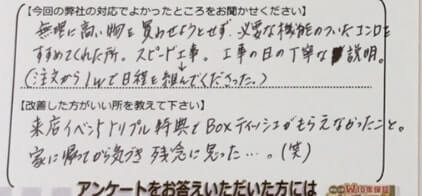 【今回の弊社の対応でよかったところをお聞かせください】
無理に高い物を買わせようとせず、必要な機能のついたコンロを
すすめてくれた所。スピード工事。工事の日の丁寧な説明。
(注文から1wで日程を組んでくださった。)
【改善した方がいい所を教えて下さい】
来店イベントトリプル特典でBoxティッシュがもらえなかったこと。
家に帰ってから気づき残念に思った…。(笑)
アンケートをお答えいただいた方には
W10年保証